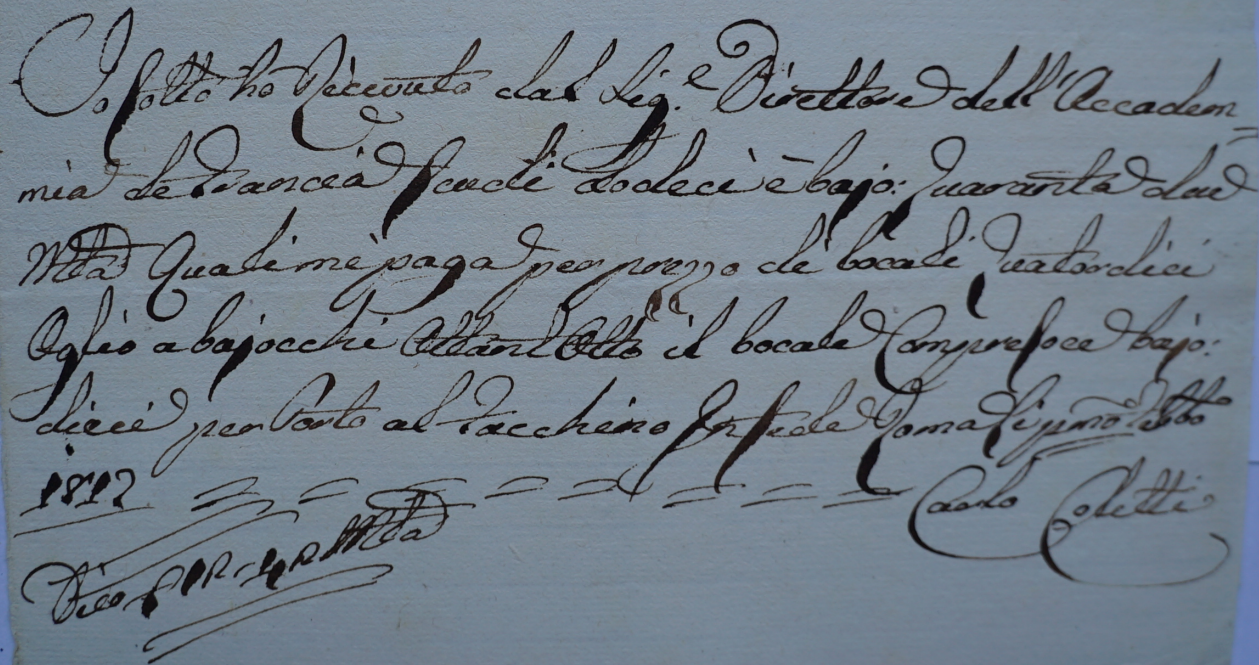 Io sotto ho Ricevuto dal Sig.e Direttore dell'Accadem=
mia de Francia Scudi dodeci è bajo: Quaranta due
Mta Quali mè paga per prezzo dè bocali Quatordici
Oglio a bajocchi Ottant Otto il bocale Compresoce bajo:
dieci per Porto al Facchino In fede Roma li pmo Febbo
1812 = = = = = = = = Carlo Coletti
Dico 12-42 Mta